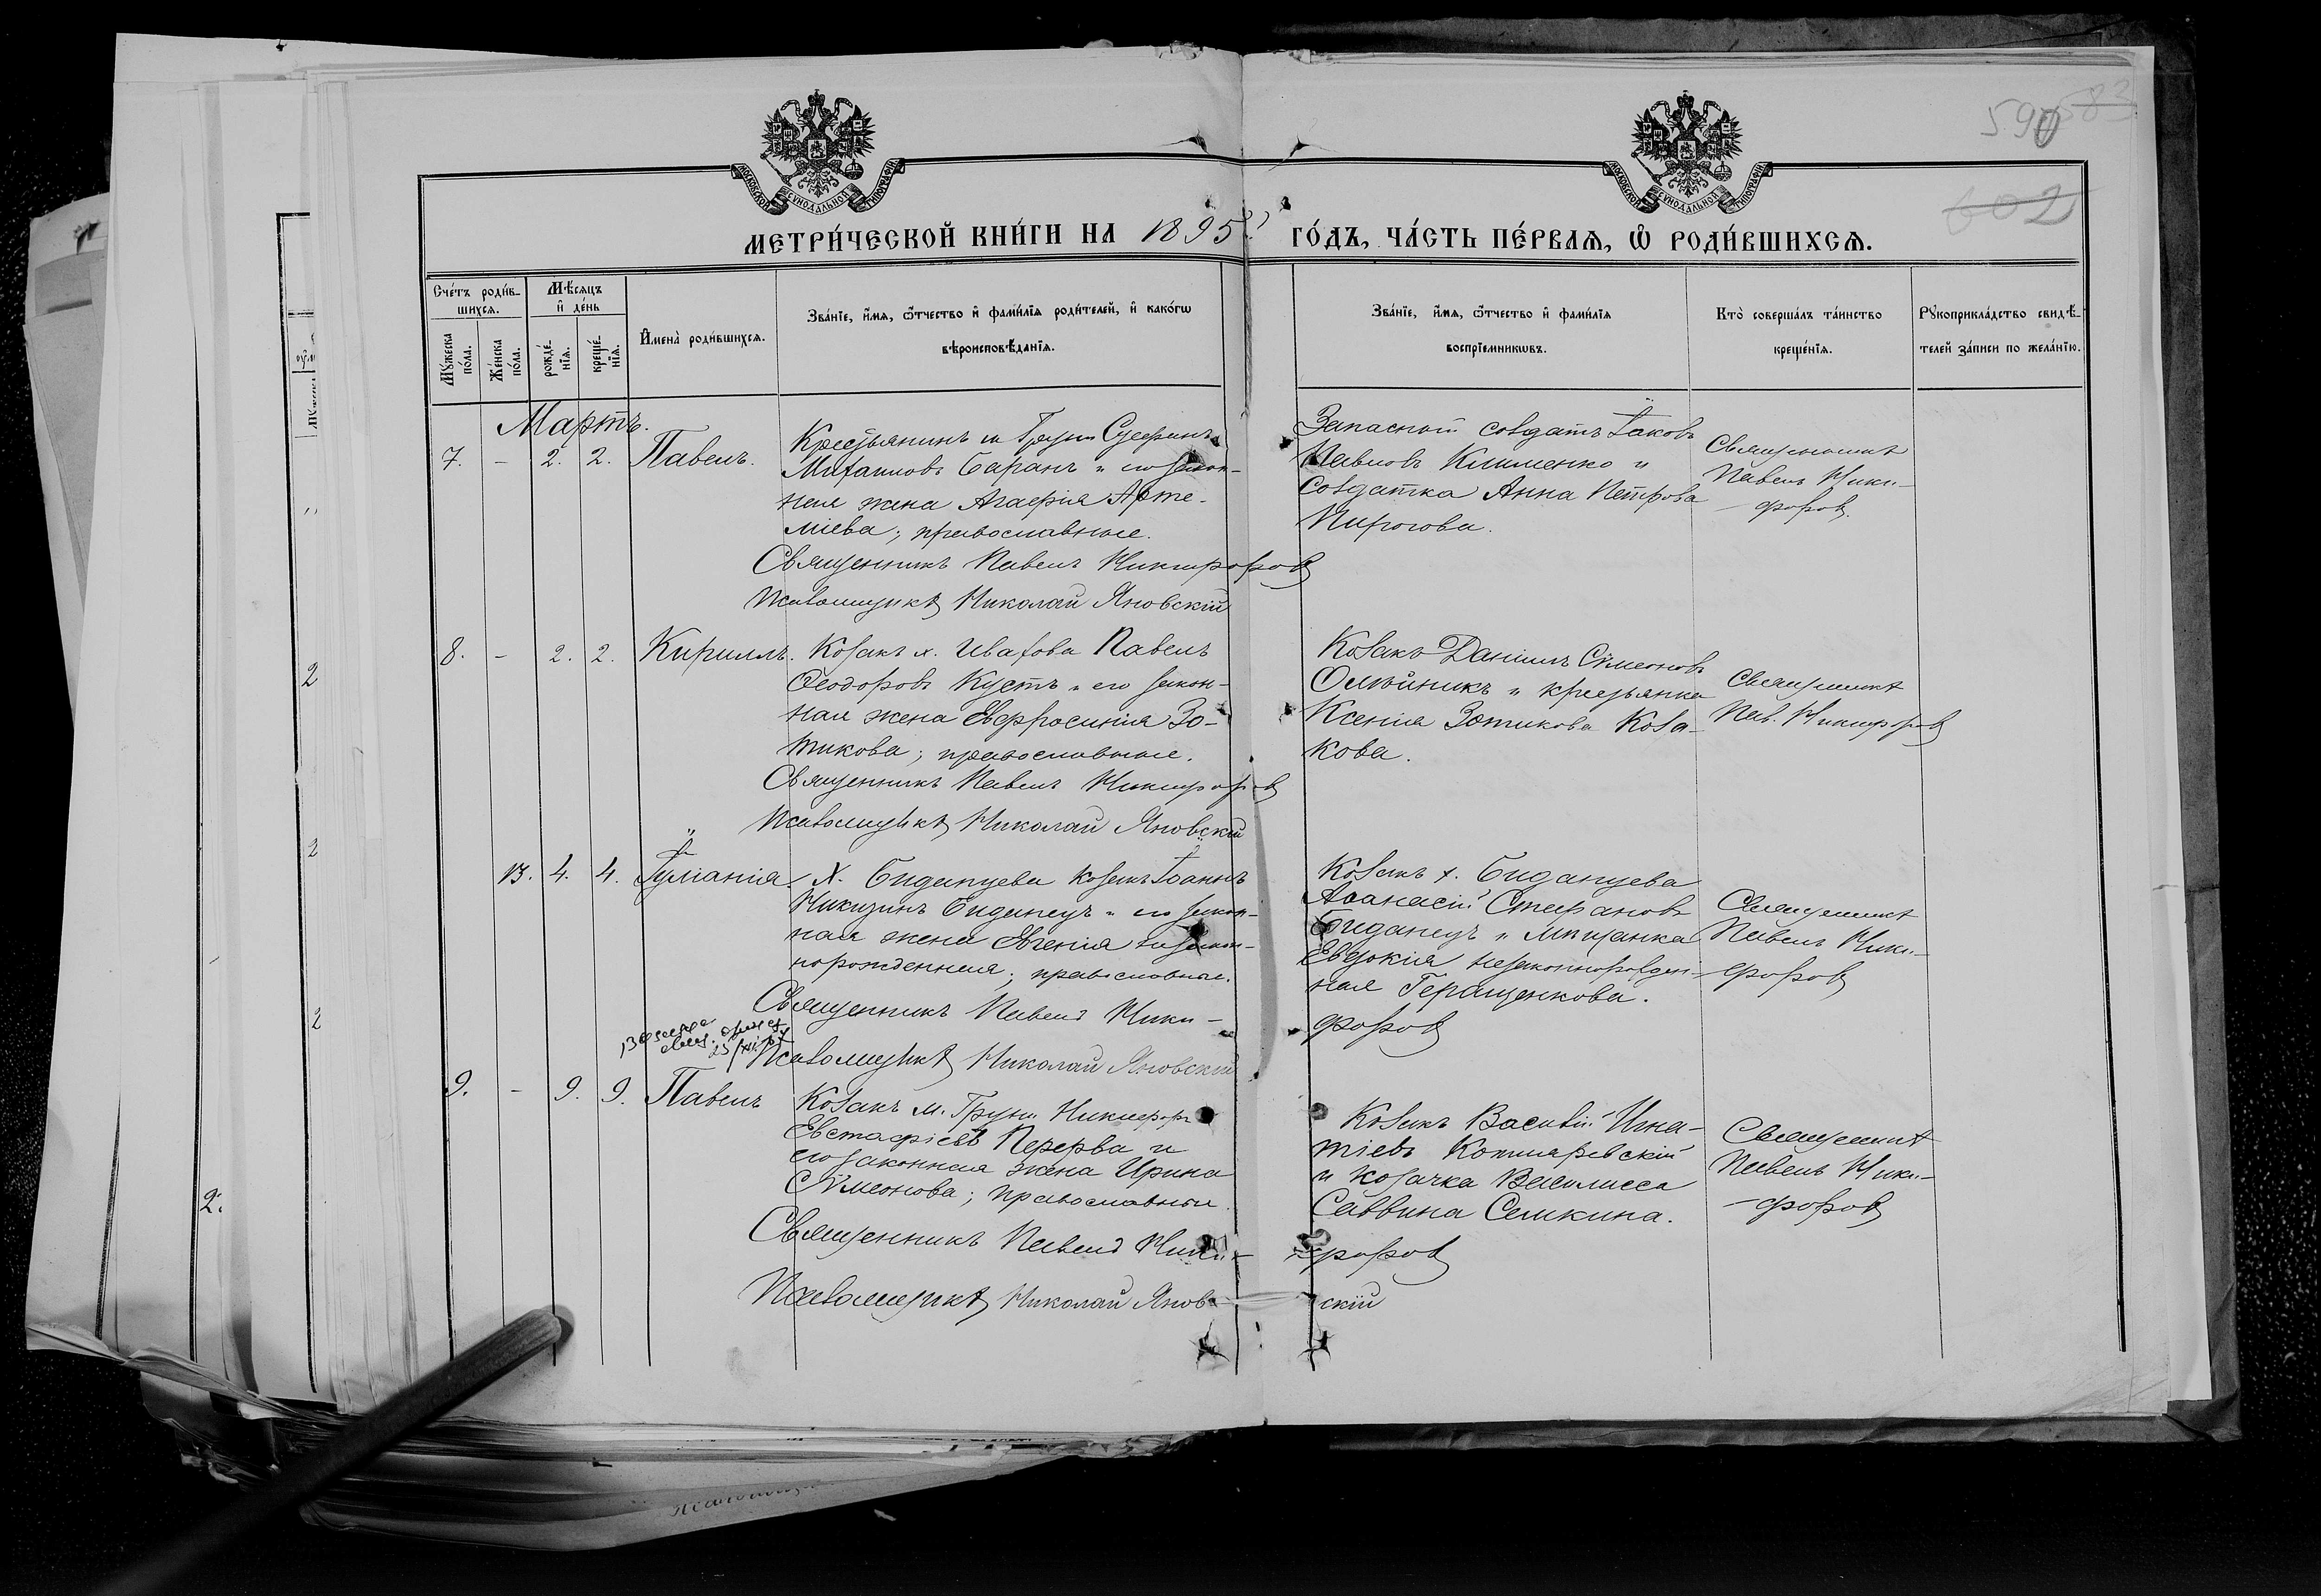 590 583
602
МОСКОВСКОЙ СУНОДАЛЬНОЙ ТИПОГРАФІИ
МОСКОВСКОЙ СУНОДАЛЬНОЙ ТИПОГРАФІИ
МЕТРИ́ЧЕСКОЙ КНИ́ГИ НА 1895 ГО́ДЪ, ЧА́СТЬ ПЕ́РВАѦ, Ѡ҆ РОДИ́ВШИХСѦ.
Сче́тъ роди́в-
шихсѧ.
Мꙋ́жеска по́ла.
Же́нска по́ла.
Мѣ́сяцъ и҆ де́нь
рожде́-
нїѧ.
креще́-
нїѧ.
И҆мена̀ роди́вшихсѧ.
Зва́нїе, и҆́мѧ, ѻ҆́тчество и҆ фами́лїѧ роди́телей, и҆ како́гѡ
вѣроисповѣ́данїѧ.
Зва́нїе, и҆́мѧ, ѻ҆́тчество и҆ фами́лїѧ
воспрїе́мникѡвъ.
Кто̀ соверша́лъ та́инство
креще́нїѧ.
Рꙋкоприкла́дство свидѣ́-
телей за́писи по жела́нїю.
Мартъ.
7. - 2. 2. Павелъ.
Крестьянинъ м. Груни
Михаиловъ Баранъ и его закон-
ная жена Агафія Арте-
міева; православные.
Священникъ Павелъ Никифоровъ
Псаломщикъ Николай Яновскій
Запасный солдатъ Іаковъ
Павловъ Клименко и
солдатка Анна Петрова
Пирогова.
Священникъ
Павелъ Ники-
форовъ.
8. - 2. 2. Кириллъ.
Козакъ х. Ивахова Павелъ
Ѳеодоровъ Кустъ и его закон-
ная жена Евфросинія Зо-
тикова; православные.
Священникъ Павелъ Никифоровъ
Псаломщикъ Николай Яновскій
Козакъ Даніилъ Сѵмеоновъ
Олѣйникъ и крестьянка
Ксенія Зотикова Коза-
кова.
Священникъ
Пав. Никифоровъ
13. 4. 4. Іуліанія.
Х. Биданцева козакъ Іоаннъ
Биданецъ и его закон-
ная жена Евгенія незакон-
норожденная; православные.
Священникъ Павелъ Ники-
форовъ
Псаломщикъ Николай Яновскій
Козакъ х. Биданцева
Аѳанасій Стефановъ
Биданецъ и мѣщанка
Евдокія незаконнорожден-
ная Геращенкова.
Священникъ
Павелъ Ники-
форовъ
9. - 9. 9. Павелъ
Козакъ м. Груни Никифоръ
Евстафіевъ Перерва и
его законная жена Ирина
Сѵмеонова; православные.
Священникъ Павелъ Ники-
форовъ
Псаломщикъ Николай Янов-
скій
Козакъ Василій Игна-
тіевъ Котляревскій
и козачка Василисса
Саввина Семкина.
Священникъ
Павелъ Ники-
форовъ
2
2
2
2.